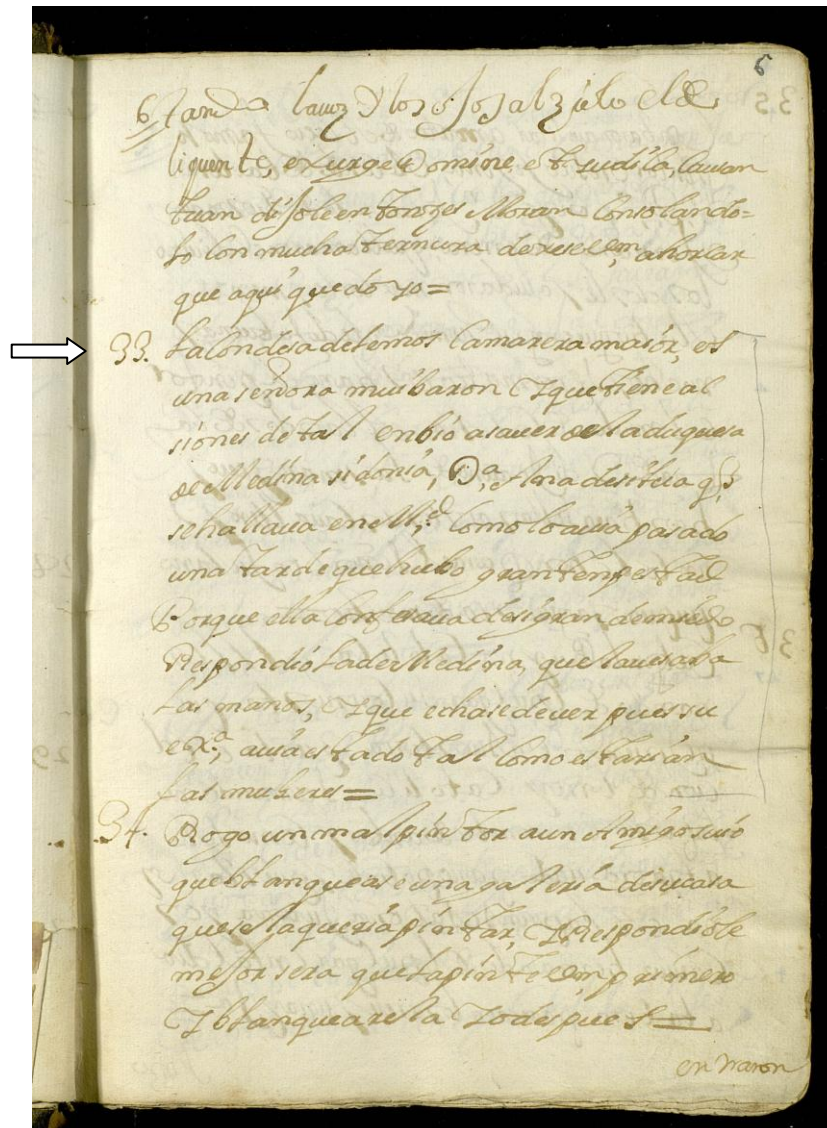 6
6 tando la voz y los ojos al zielo el de
liquente, exurge Domine et iudica, causan
tuan dijole entonzes Moran consolando=
lo con mucha ternura dexese Vm ahorcar
que aqui quedo yo=
33. La Condesa de Lemos Camarera maior, es
una señora mui baron y que tiene ac
siones de tal enbio a saver de la duquesa
de Medina sidonia, Da Ana de silva q
se hallava en Md como lo avia pasado
una tarde que hubo gran tenpestad
Porque ella confesava desi gran de miedo
Respondio la de Medina, que la vesaba
las manos, y que echase de ver pues su
exa, avia estado tal como estarian
las muxeres=
34. Rogo un mal pintor a un Amigo suio
que blanquease una galeria de su casa
que se la queria pintar, y Respondiole
mejor sera que la pinte Vm primero
y blanqueare la yo despues=
en traron